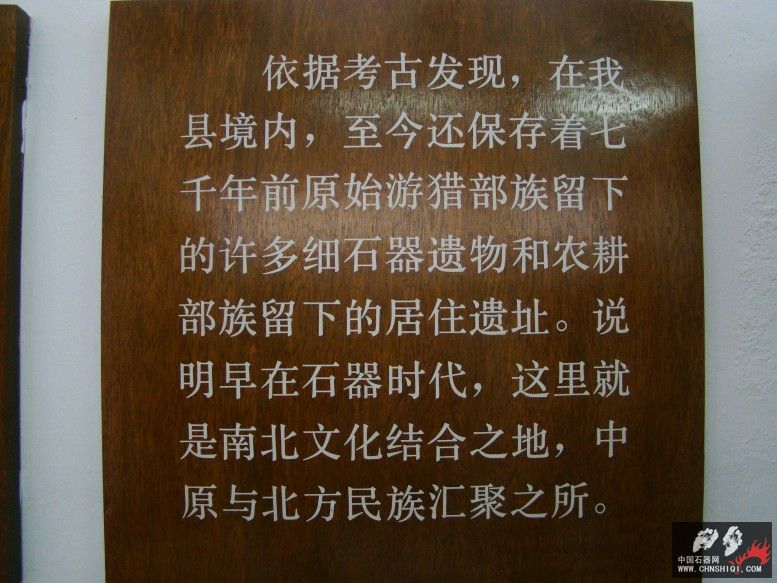 依据考古发现，在我
县境内，至今还保存着七
千年前原始游猎部族留下
的许多细石器遗物和农耕
部族留下的居住遗址。说
明早在石器时代，这里就
是南北文化结合之地，中
原与北方民族汇聚之所。
中国石器网
WWW.CHNSHIQI.COM